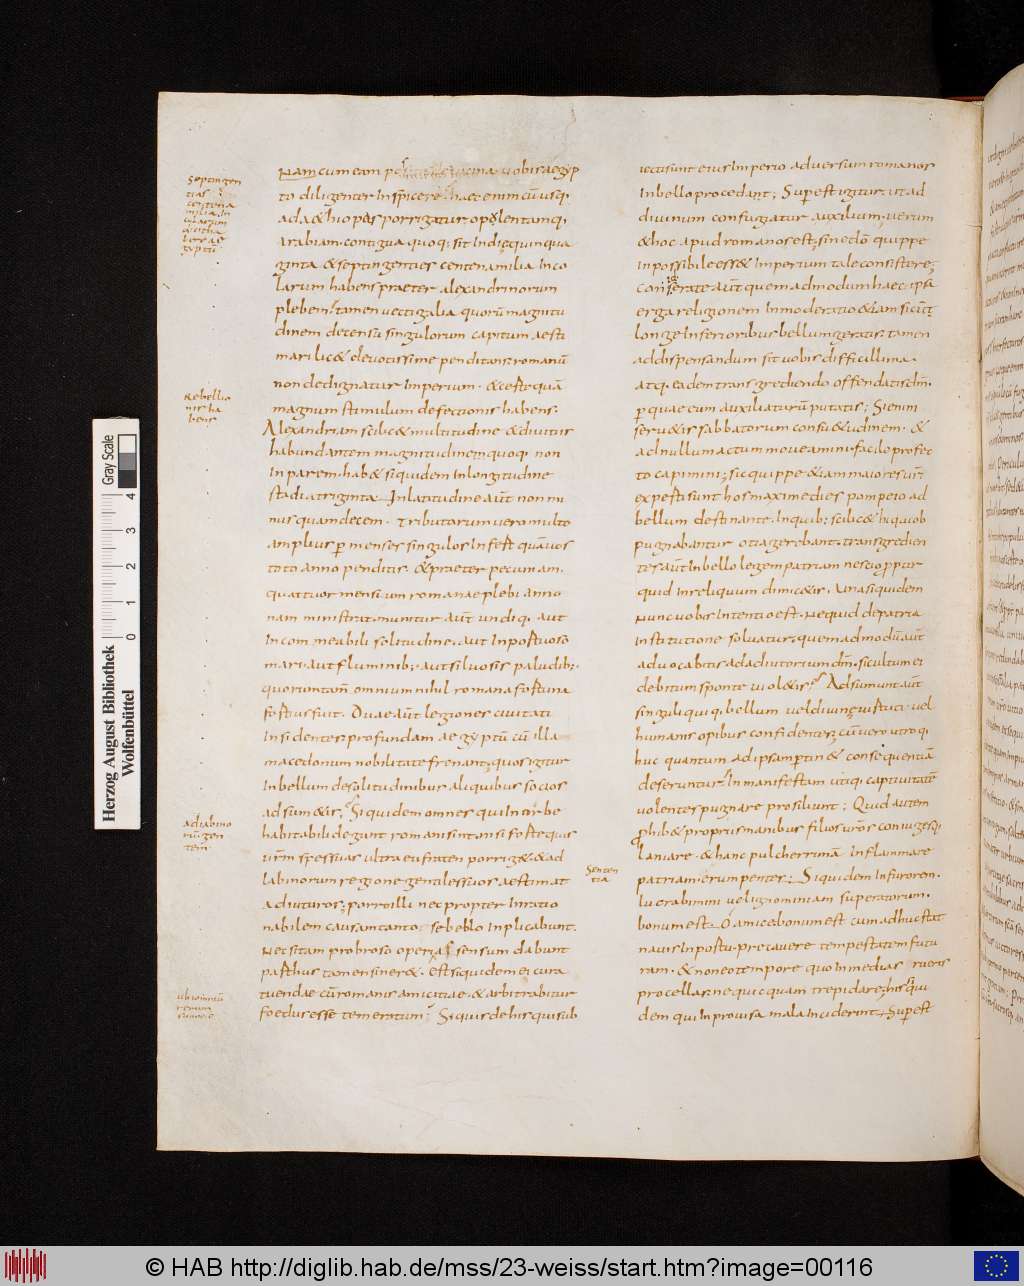 Septingen
ties
centena
milia in
colarum
habere ae
gyptū
Rebellio
nis ha
bens
adiabino
rū gen
tem
Nam cum eam uicina uobis aegyp
to diligenter inspicere haec enim cū usq;
ad aethiopas porrigatur opolentamq;
arabiam contigua quoq; sit indię quinqua
ginta & septingenties centena milia inco
larum habens praeter alexandrinorum
plebem tamen uectigalia quorū magnitu
dinem decensū singulorum capitum aesti
mari lic& deuotissime penditans romanū
non dedignatur imperium. & est equā
magnum stimulum defectionis habens.
Alexandriam scilic& multitudine & diuitiis
habundantem magnitudinem quoq; non
inparem hab& siquidem in longitudine
stadia triginta. In latitudine aūt non mi
nus quam decem. Tributarum uero multo
amplius p menses singulos infest quā uos
toto anno penditis. & praeter pecuniam.
quattuor mensium romanae plebi anno
nam ministrat. munitur aūt undiq; aut
incommeabili solitudine. aut inportuoso
mari. aut fluminib; aut siluosis paludib;
quorum tam̄ omnium nihil romana fortuna
fortius fuit. Duae aūt legiones ciuitati
insidentes profundam aegyptū cū illa
macedonum nobilitate frenant; quos igitur
in bellum desolitudinibus aliquibus socios
adsum&is? Siquidem omnes qui in orbe
habitabili degunt romani sint. nisi forte quis
urm̄ spes suas ultra eufraten porrig&. & ad
labinorum regione gentiles suos aestimat
adiuturos; porro illi nec propter in ratio
nabilem causam tanto se bello inplicabunt.
Nec si tam probroso operi assensum dabunt
parthus tamen siner&. est siquidem ei cura
tuendae cū romanis amicitiae. & arbitrabitur
foedus esse temeratum; Siquis de his qui sub
uecti sunt eius imperio aduersum romanos
in bello procedant; Superest igitur ut ad
diuinum confugiatur auxilium; uerum
& hoc apud romanos est; sine dō quippe
inpossibile ess& imperium tale consistere;
Considerate aūt quemadmodum haec ipsa
erga religionem inmoderatio &iam sicūt
longe inferioribus bellum geratis. tamen
ad dispensandum sit uobis difficillima.
atq; eadem transgrediendo offendatis dm̄.
p quae eum auxiliaturū putatis; Si enim
seru&is sabbatorum consu&udinem. &
ad nullum actum moueamini. facile profec
to capimini; sic quippe &iam maiores urī
experti sunt hos maxime dies pompeio ad
bellum destinante. In quib; scilic& hi quob
pugnabantur otia gerebant. transgredien
tes aūt in bello legem patriam nescio ppter
quid in reliquum dimic&is. Una siquidem
nunc uobis intentio est. Ne quid de patria
institutione soluatur; quemadmodū aūt
aduocabitis ad adiutorium dm̄. si cultum ei
debitum sponte uiol&is? Adsumunt aūt
singuli quiq; bellum uel diuinę uirtuti. uel
humanis opibus confidentes; cū uero utroq;
huc quantum ad ipsam ptin& consequentiā
deseruntur. In manifestam utiq; captiuitatē
uolentes pugnare prosiliunt; Quid autem
phib& propriis manibus filios uros coniugesq;
laniare. & hanc pulcherrimā inflammare
patriam erumpentes; Siquidem in furorem.
lucrabimini uel ignominiam superatorum.
Senten
tia
bonum est. O amice bonum est cum adhuc stat
nauis in portu. precauere tempestatem futu
ram. & non eo tempore quo in medias rueris
procellas. ne quicquam trepidare; his qui
dem qui inprouisa mala inciderint. Superest
Herzog August Bibliothek
Wolfenbüttel
Gray Scale
0 1 2 3 4
© HAB http://diglib.hab.de/mss/23-weiss/start.htm?image=00116